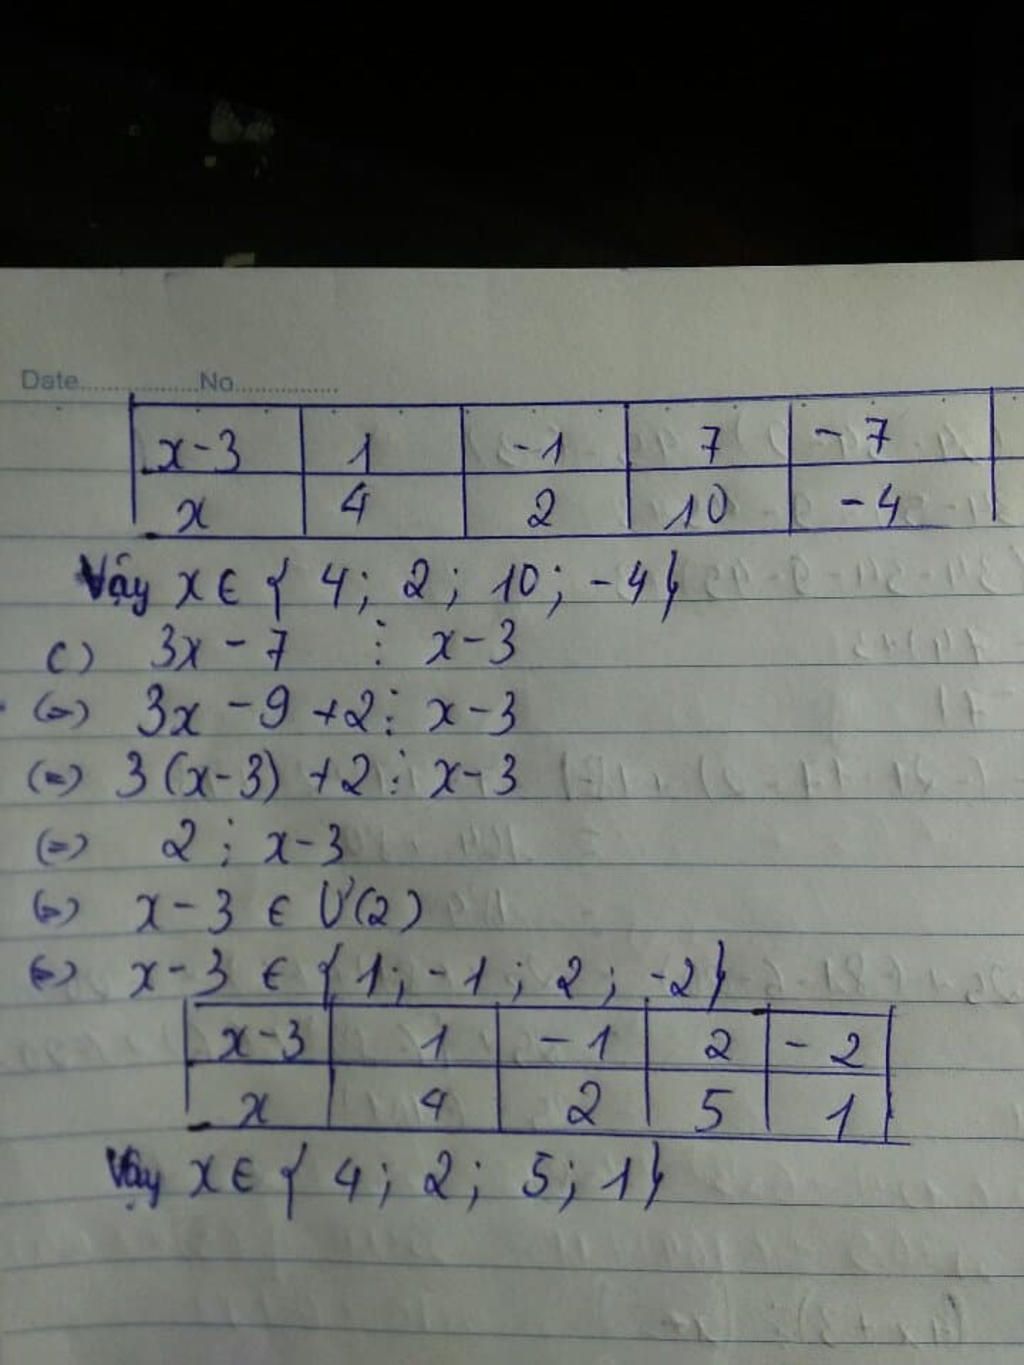 Date................No..............
x-3 1 -1 7 -7
x 4 2 10 -4
Vậy x ∈ { 4 ; 2 ; 10 ; -4 }
c) 3x - 7 ⋮ x-3
(=) 3x - 9 + 2 ⋮ x-3
(=) 3(x-3) + 2 ⋮ x-3
(=) 2 ⋮ x-3
(=) x-3 ∈ Ư(2)
(=) x-3 ∈ { 1 ; -1 ; 2 ; -2 }
x-3 1 -1 2 -2
x 4 2 5 1
Vậy x ∈ { 4 ; 2 ; 5 ; 1 }